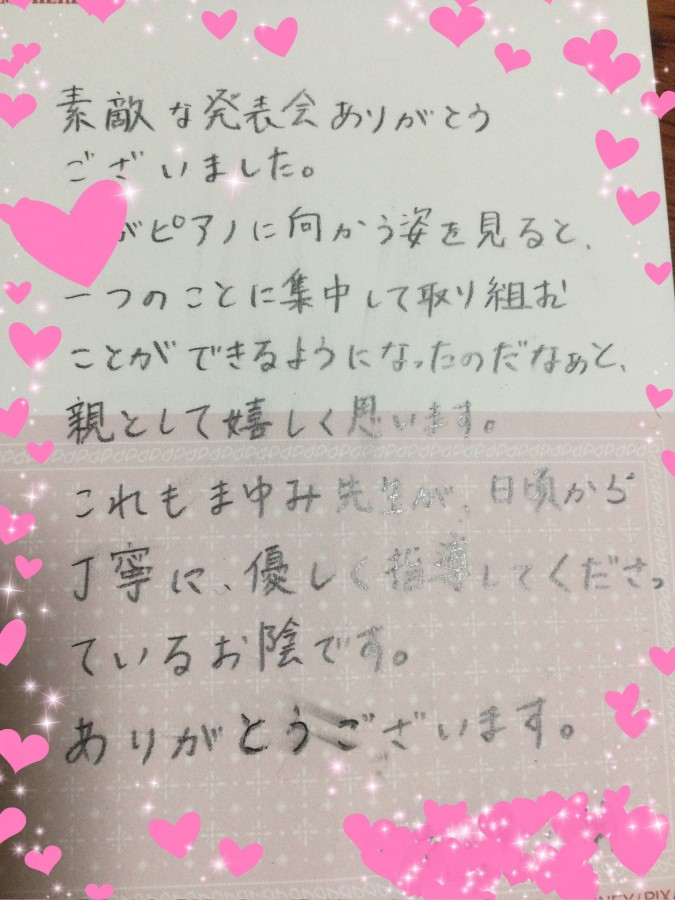 素敵な発表会ありがとう
ございました。
がピアノに向かう姿を見ると、
一つのことに集中して取り組む
ことができるようになったのだなぁと、
親として嬉しく思います。
これもまゆみ先生が、日頃から
丁寧に、優しく指導してくださっ
ているお陰です。
ありがとうございます。